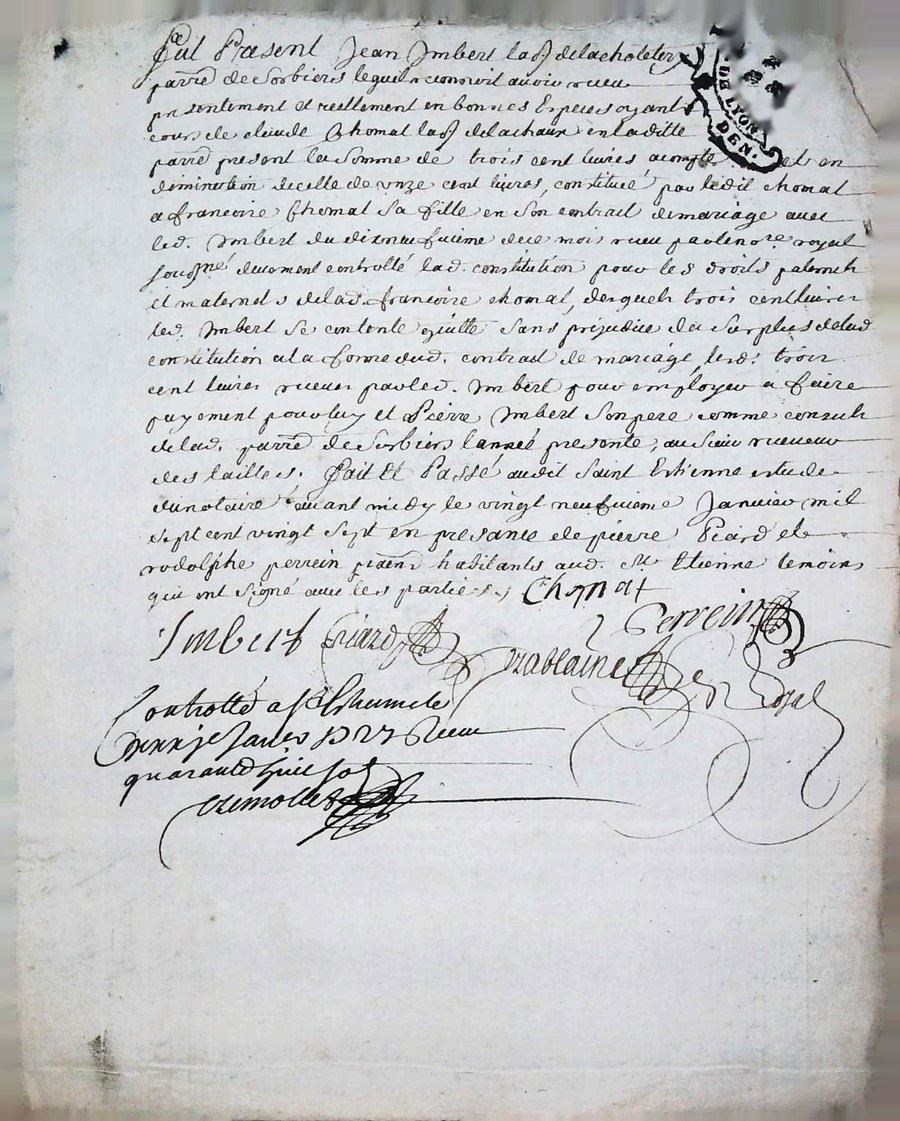 Fut Present Jean Imbert lab.r delacholetery
parre de Sorbieres lequel reconnoit avoir receu
presentement et reellement en bonnes Especes ayant
cours de claude Chomat lab.r delachaux en laditte
parre present la Somme de trois cent livres acompte et en
diminution decelle de unze cent livres, constitué par ledit chomat
a francoise Chomat Sa fille en Son contrait demariage avec
led. Imbert du dixneufvieme dece mois receu par le nore royal
sousné duement controllé lad. constitution pour les droits paternels
et maternels delad. francoise chomat, desquels trois cent livres
led. Imbert Se contente quitte Sans prejudice du Surplus delad.
constitution a la forme dud. contrait de mariage, lesd. trois
cent livres receues par led. Imbert pour employer a faire
payement pour luy et Pierre Imbert Son pere comme consuls
delad. parre de Sorbiers lannée presente, au Sieur receveur
des tailles, Fait Et Passé audit Saint Estienne estude
dunotaire avant midy le vingt neufvieme Janvier mil
sept cent vingt Sept en presance de pierre Picard et
rodolphe perrein habitants aud. St Etienne temoins
qui ont Signé avec les parties
Chomat
Imbert Picard Perrein
Royal
Controllé a St Estienne le
Janvier 1727 Receu
quarante huit sols